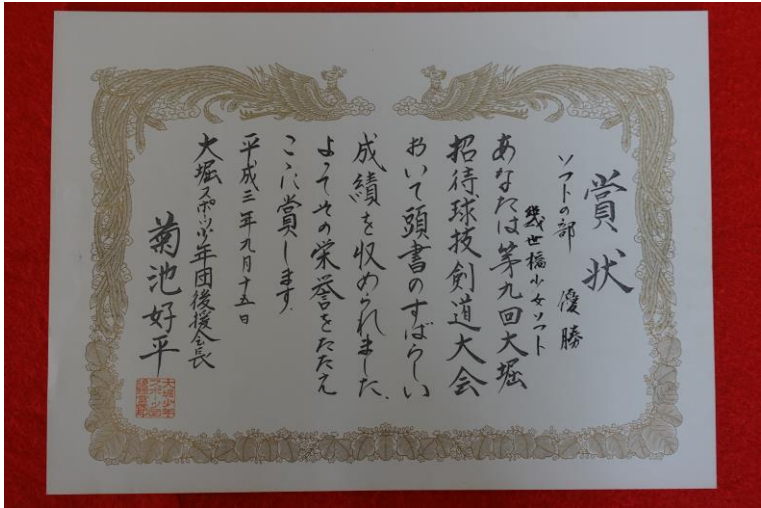 賞状
ソフトの部　優勝
幾世橋少女ソフト
あなたは第九回大堀
招待球技剣道大会
おいて頭書のすばらしい
成績を収められました
よってその栄誉をたたえ
ここに賞します
平成三年九月十五日
大堀スポーツ少年団後援会長
菊池好平